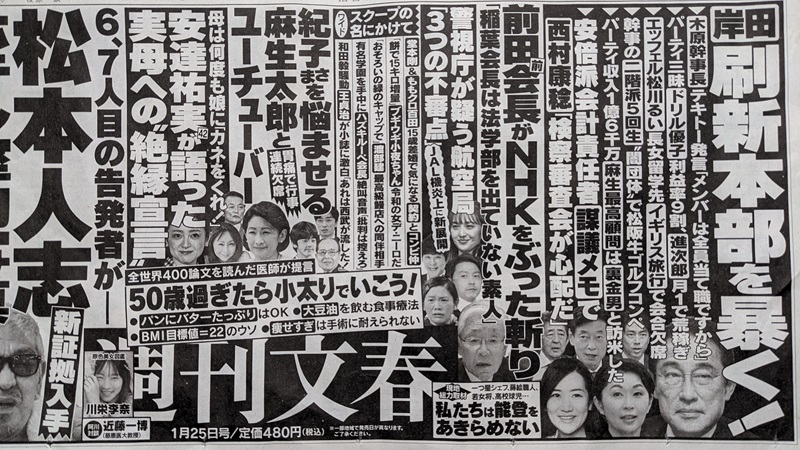 岸田刷新本部を暴く!
木原幹事長代行テキトー発言「メンバーは全員当て職ですから」
パーティ三昧ドリル優子利益率9割、進次郎月1で荒稼ぎ
エッフェル松川るい長女留学先イギリス旅行で会合欠席
幹事の二階派5回生“闇団体”で松阪牛ゴルフコンペ
パーティ収入1億6千万麻生最高顧問は裏金男と訪米した
安倍派会計責任者謀議メモで
西村康稔「検察審査会が心配だ」
前田前会長がNHKをぶった斬り
「稲葉会長は法学部を出ていない素人」
警視庁が疑う航空局
「3つの不審点」
JAL機炎上に新展開
スクープの名にかけて
ワイド
堂本剛&ももクロ百田15歳差婚で気になる契約とロンど仲
餅で15キロ増量「ブギウギ」小夜ちゃん令和の女デニーロだ
おそろいの緑のキャップで池田邸、最高級鮨店への同伴相手
有名学園を手中にハズキルーペ会長絶叫音声「批判は控えろ」
和田幹騒動王貞治が小誌に激白「あれは西武が流した!」
紀子さまを悩ませる
麻生太郎と
ユーチューバー
両陛下で行事連続欠席
母は何度も娘にカネをくれ!
安達祐実が語った
42
実母への“絶縁宣言”
6、7人目の告発者が――
松本人志
新証拠入手
全世界400論文を読んだ医師が提言
50歳過ぎたら小太りでいこう!
・パンにバターたっぷりはOK・大豆油を飲む食事療法
・BMI目標値=22のウソ・痩せすぎは手術に耐えられない
週刊文春
1月25日号/定価480円(税込)
※一部地域で発売日が異なります。ご了承ください。
原色美女図鑑
川栄李奈
阿川対談
近藤一博
(慈恵医大教授)
現地総力取材
一つ星シェフ、蒔絵職人、若女将、高校球児…
私たちは能登をあきらめない